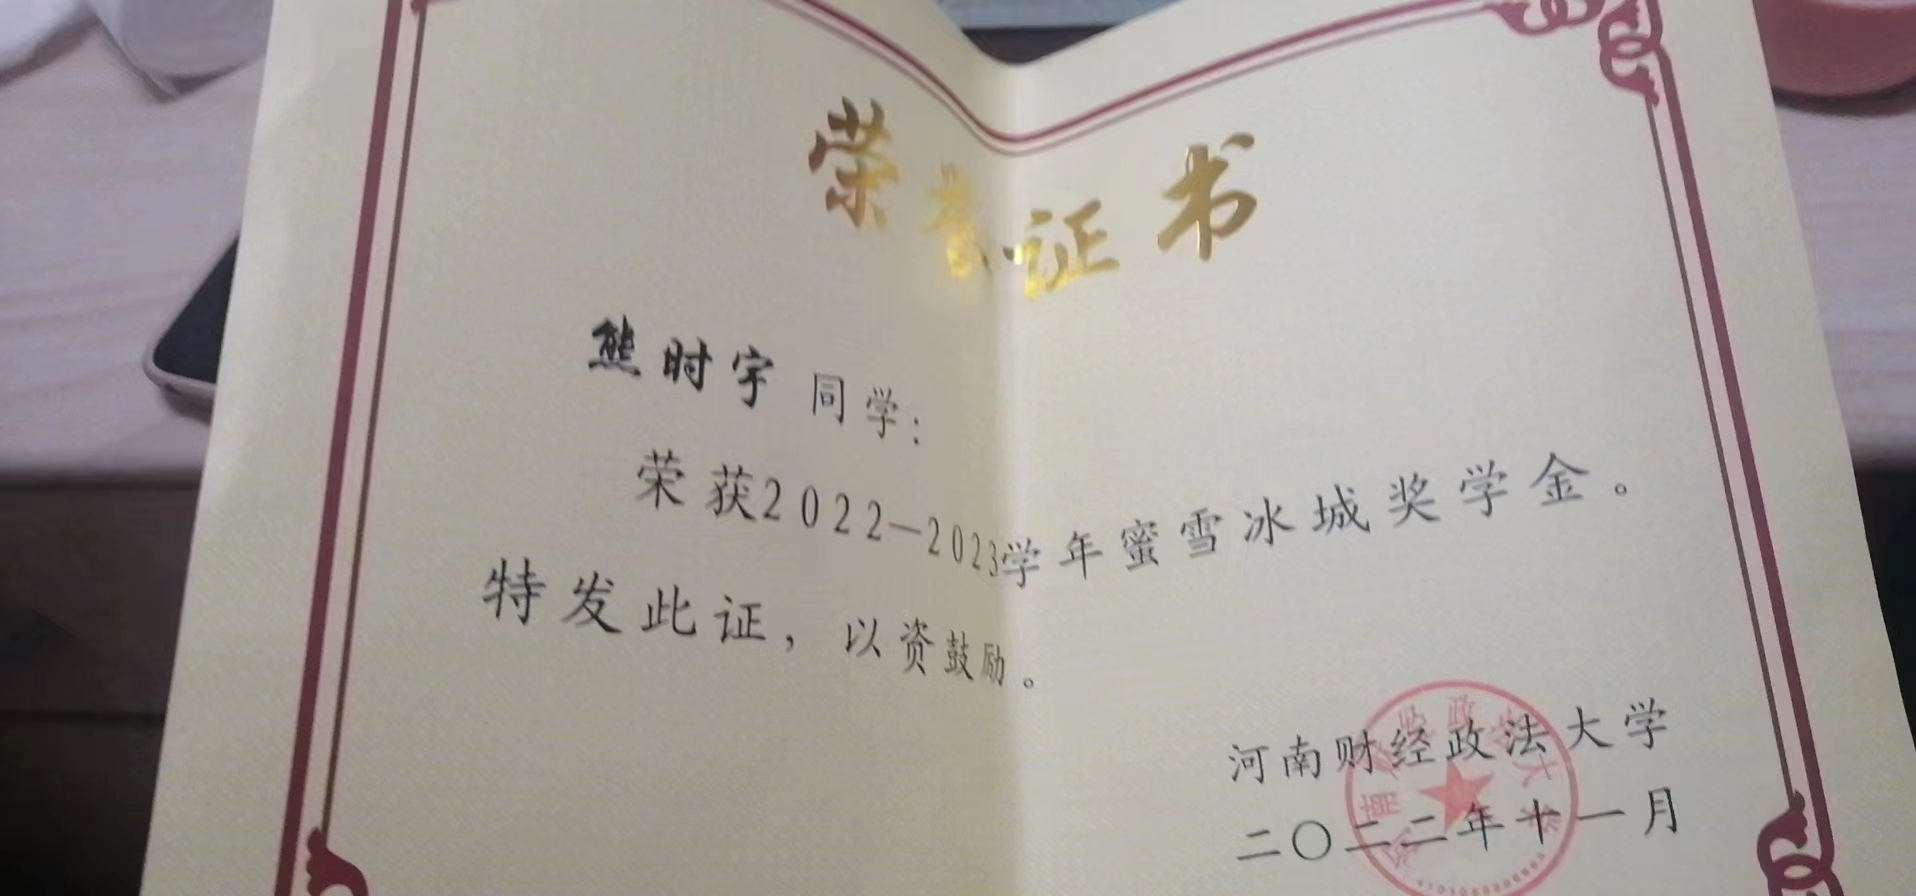 荣誉证书
熊时宇 同学：
荣获2022—2023学年蜜雪冰城奖学金。
特发此证，以资鼓励。
河南财经政法大学
二〇二二年十一月